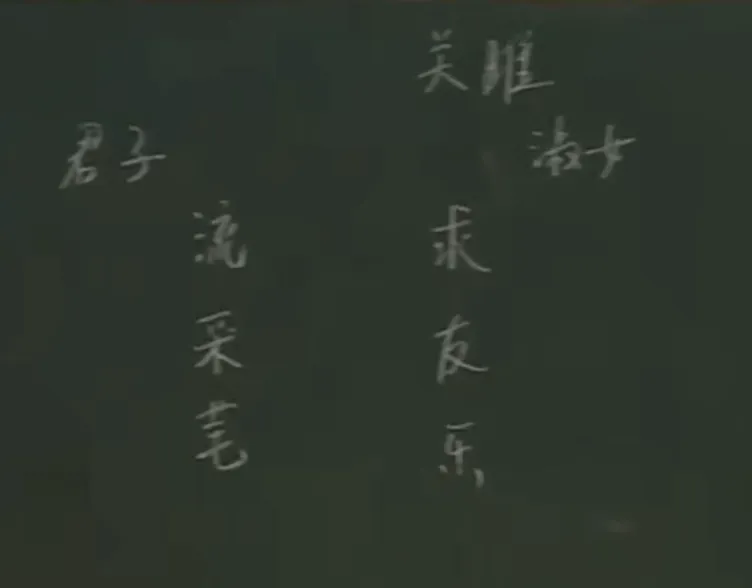 关雎
君子 淑女
流 求
采 友
芼 乐